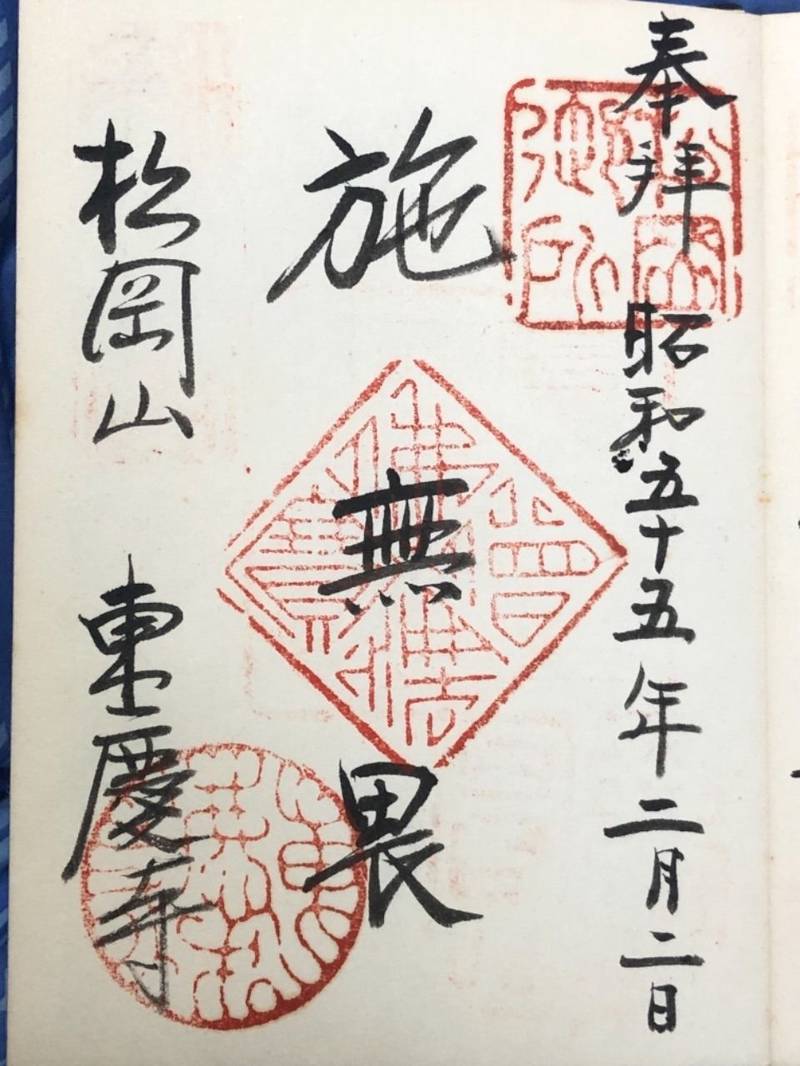 奉拝 昭和五十五年二月二日
施無畏
松岡山 東慶寺
佛法僧寶